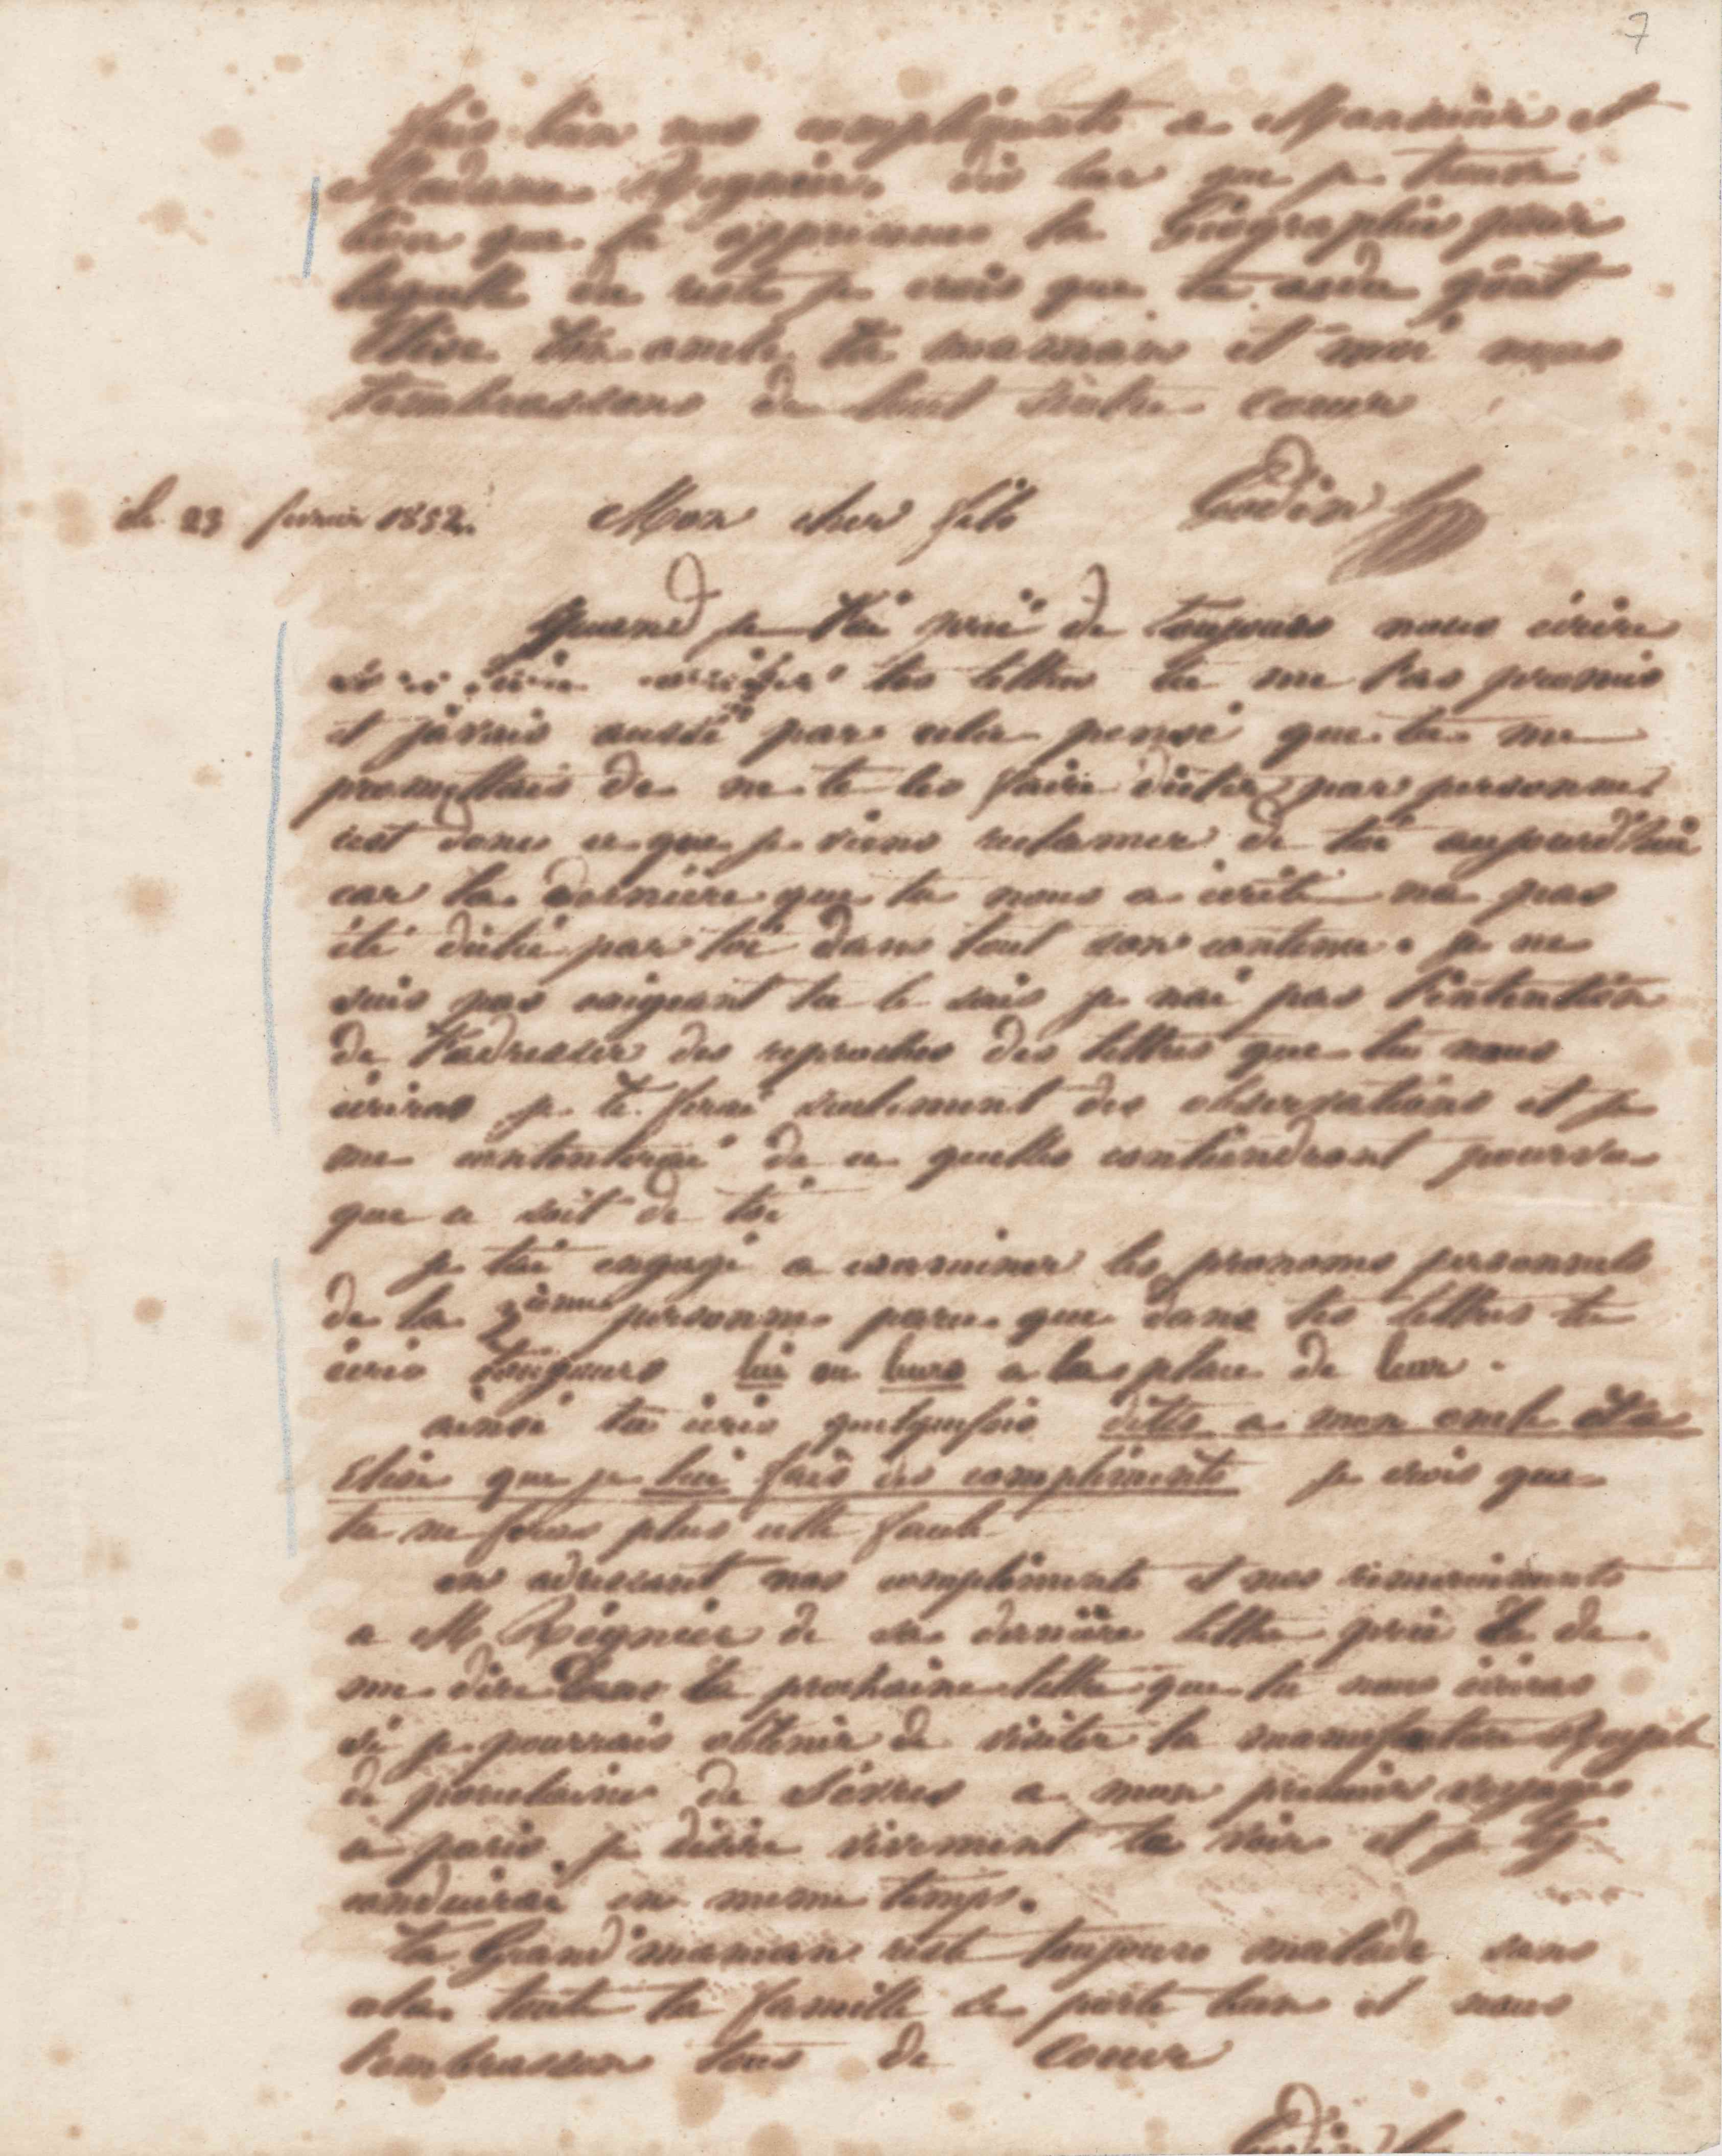 7
fais bien nos compliments a Monsieur et
Madame Regnier. dis leur que je trouve
bien que tu apprennes la Géographie pour
laquelle du reste je crois que tu as du goût
Elisa ton oncle ta maman et moi nous
t'embrassons de tout notre coeur
Godin
le 23 fevrier 1852. Mon cher fils
Quand je t'ai prié de toujours nous ecrire
tes lettres tu me l'as promis
et j'avais aussi par cela pensé que tu me
promettais de ne te les faire dicter par personne
cest donc ce que je viens reclamer de toi aujourd'hui
car la derniere que tu nous a ecrite na pas
été dictée par toi dans tout son contenu. je ne
suis pas exigeant tu le sais je nai pas l'intention
de t'adresser des reproches des lettres que tu nous
ecriras je te ferai seulement des observations et je
me contenterai de ce quelles contiendront pourvu
que ce soit de toi
je tai engagé a examiner les pronoms personnels
de la 3ieme personne parce que dans tes lettres tu
ecris toujours lui ou leurs a la place de leur.
ainsi tu ecris quelquefois dites a mon oncle et a
Elisa que je lui fais des compliments je crois que
tu ne feras plus cette faute
en adressant nos compliments et nos remerciments
a M Reignier de sa derniere lettre prie le de
me dire dans la prochaine lettre que tu nous ecriras
si je pourrais obtenir de visiter la manufacture Royale
de porcelaine de Sévres a mon premier voyage
a paris je désire vivement la voir et je t'y
conduirai en meme temps.
ta Grand'maman reste toujours malade sans
cela toute la famille se porte bien et nous
t'embrasson tous de coeur
Godin